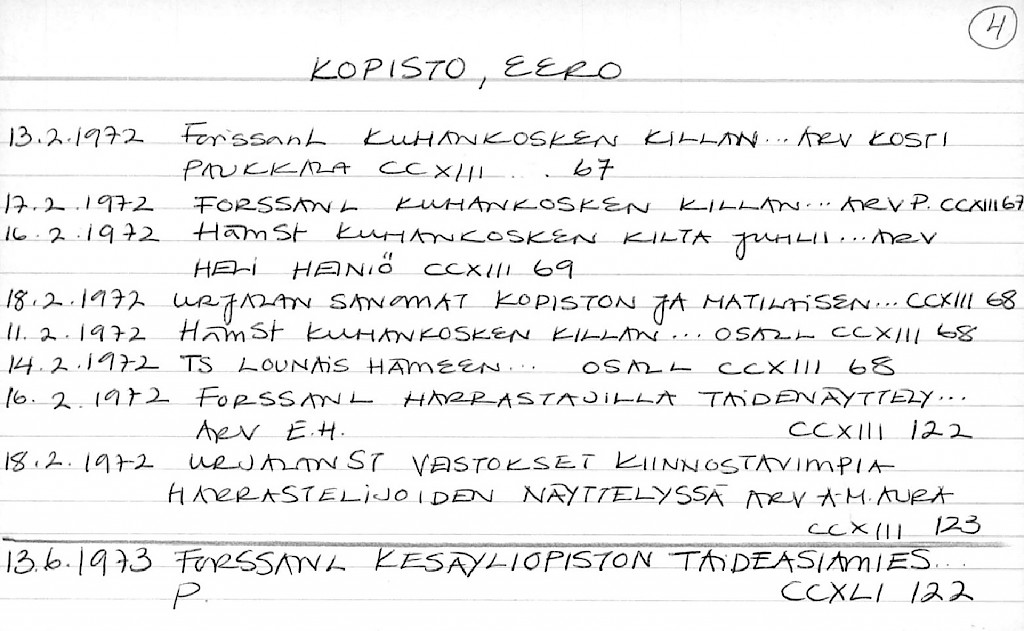 4
KOPISTO, EERO
13.2.1972 ForssanL KUHANKOSKEN KILLAN... ARV KOSTI
PAUKKALA CCXIII . . . 67
17.2.1972 FORSSANL KUHANKOSKEN KILLAN... ARV P. CCXIII 67
16.2.1972 HämSt KUHANKOSKEN KILTA JUHLII... ARV
HELI HEINIÖ CCXIII 69
18.2.1972 URJALAN SANOMAT KOPISTON JA MATILAISEN... CCXIII 68
11.2.1972 HämSt KUHANKOSKEN KILLAN... OSALL CCXIII 68
14.2.1972 TS LOUNAIS HÄMEEN... OSALL CCXIII 68
16.2.1972 FORSSANL HARRASTAJILLA TAIDENÄYTTELY...
ARV E.H. CCXIII 122
18.2.1972 URJALANST VEISTOKSET KIINNOSTAVIMPIA
HARRASTELIJOIDEN NÄYTTELYSSÄ ARV A-M. AURA
CCXIII 123
13.6.1973 FORSSANL KESÄYLIOPISTON TAIDEASIAMIES...
P. CCXLI 122